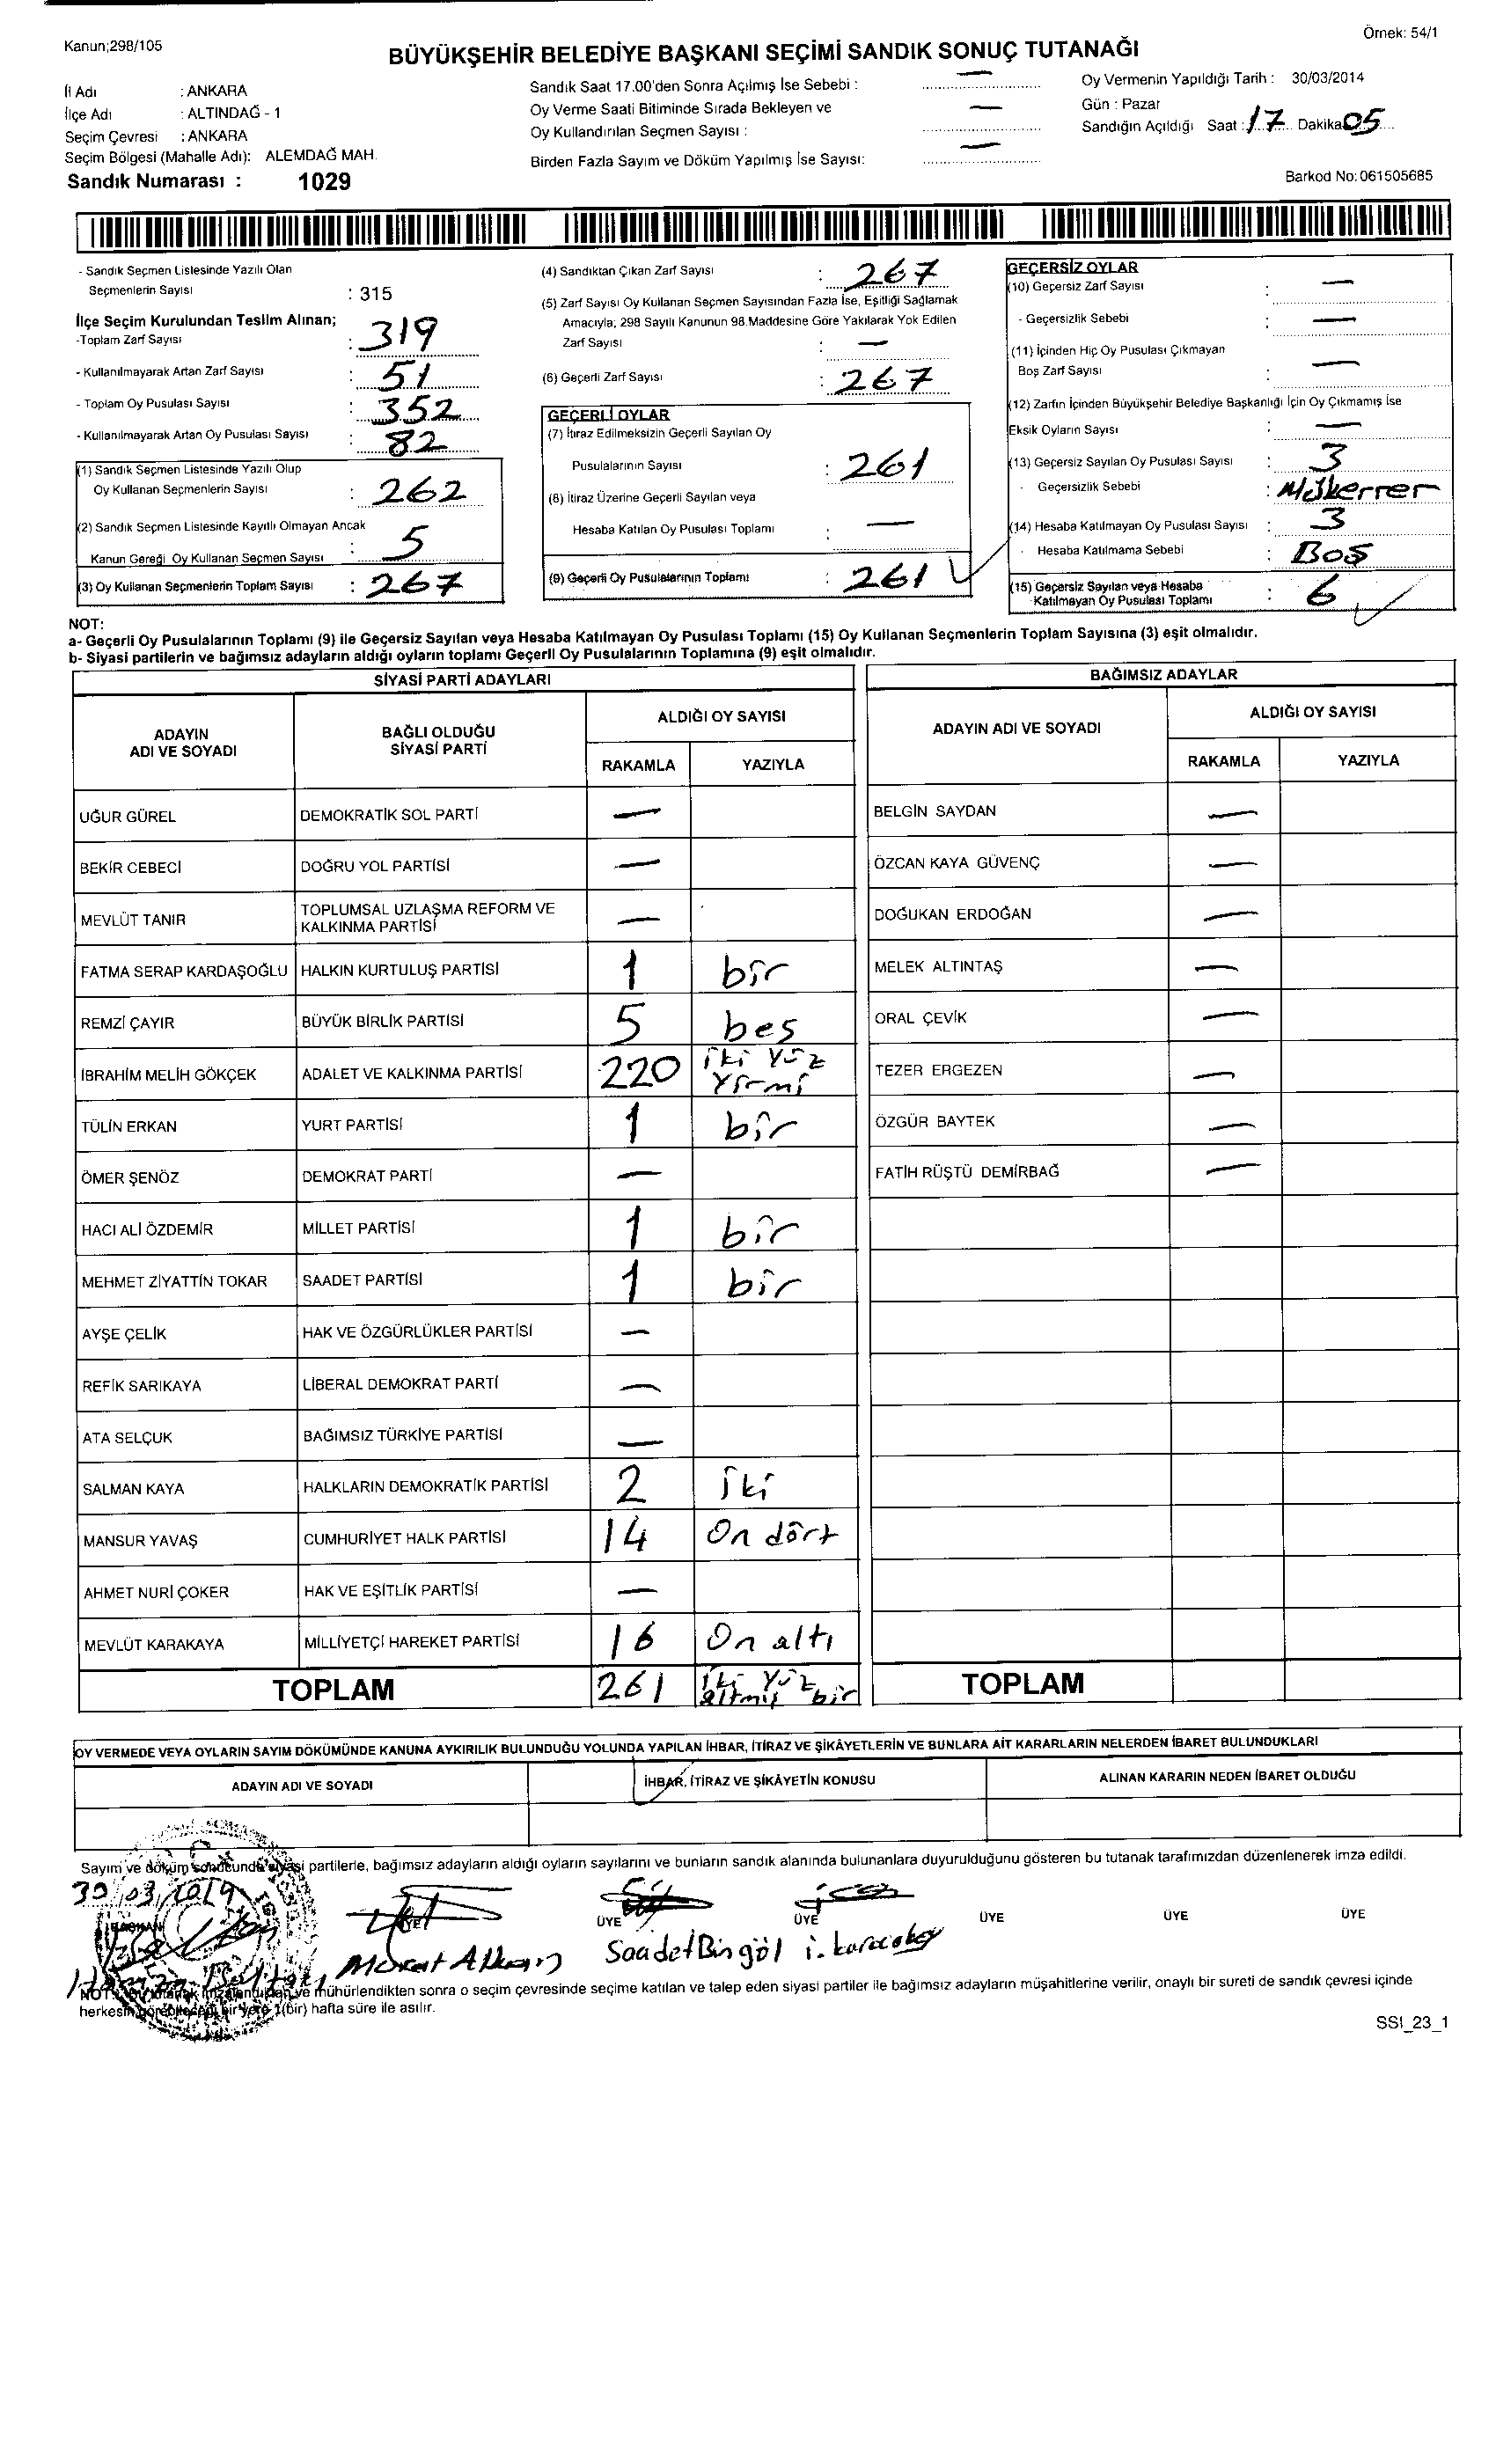 Kanun;298/105
Örnek: 54/1
BÜYÜKŞEHİR BELEDİYE BAŞKANI SEÇİMİ SANDIK SONUÇ TUTANAĞI
İl Adı : ANKARA
İlçe Adı : ALTINDAĞ - 1
Seçim Çevresi : ANKARA
Seçim Bölgesi (Mahalle Adı): ALEMDAĞ MAH.
Sandık Numarası : 1029
Sandık Saat 17.00'den Sonra Açılmış İse Sebebi : —
Oy Verme Saati Bitiminde Sırada Bekleyen ve
Oy Kullandırılan Seçmen Sayısı : —
Birden Fazla Sayım ve Döküm Yapılmış İse Sayısı: —
Oy Vermenin Yapıldığı Tarih : 30/03/2014
Gün : Pazar
Sandığın Açıldığı Saat : 17 Dakika 05
Barkod No: 061505685
- Sandık Seçmen Listesinde Yazılı Olan
Seçmenlerin Sayısı : 315
İlçe Seçim Kurulundan Teslim Alınan;
-Toplam Zarf Sayısı : 319
- Kullanılmayarak Artan Zarf Sayısı : 51
- Toplam Oy Pusulası Sayısı : 352
- Kullanılmayarak Artan Oy Pusulası Sayısı : 82
(1) Sandık Seçmen Listesinde Yazılı Olup
Oy Kullanan Seçmenlerin Sayısı : 262
(2) Sandık Seçmen Listesinde Kayıtlı Olmayan Ancak
Kanun Gereği Oy Kullanan Seçmen Sayısı : 5
(3) Oy Kullanan Seçmenlerin Toplam Sayısı : 267
(4) Sandıktan Çıkan Zarf Sayısı : 267
(5) Zarf Sayısı Oy Kullanan Seçmen Sayısından Fazla İse, Eşitliği Sağlamak
Amacıyla; 298 Sayılı Kanunun 98.Maddesine Göre Yakılarak Yok Edilen
Zarf Sayısı : —
(6) Geçerli Zarf Sayısı : 267
GEÇERLİ OYLAR
(7) İtiraz Edilmeksizin Geçerli Sayılan Oy
Pusulalarının Sayısı : 261
(8) İtiraz Üzerine Geçerli Sayılan veya
Hesaba Katılan Oy Pusulası Toplamı : —
(9) Geçerli Oy Pusulalarının Toplamı : 261
GEÇERSİZ OYLAR
(10) Geçersiz Zarf Sayısı : —
- Geçersizlik Sebebi : —
(11) İçinden Hiç Oy Pusulası Çıkmayan
Boş Zarf Sayısı : —
(12) Zarfın İçinden Büyükşehir Belediye Başkanlığı İçin Oy Çıkmamış İse
Eksik Oyların Sayısı : —
(13) Geçersiz Sayılan Oy Pusulası Sayısı : 3
- Geçersizlik Sebebi : Mükerrer
(14) Hesaba Katılmayan Oy Pusulası Sayısı : 3
- Hesaba Katılmama Sebebi : Boş
(15) Geçersiz Sayılan veya Hesaba
Katılmayan Oy Pusulası Toplamı : 6
NOT:
a- Geçerli Oy Pusulalarının Toplamı (9) ile Geçersiz Sayılan veya Hesaba Katılmayan Oy Pusulası Toplamı (15) Oy Kullanan Seçmenlerin Toplam Sayısına (3) eşit olmalıdır.
b- Siyasi partilerin ve bağımsız adayların aldığı oyların toplamı Geçerli Oy Pusulalarının Toplamına (9) eşit olmalıdır.
SİYASİ PARTİ ADAYLARI
ADAYIN
ADI VE SOYADI
BAĞLI OLDUĞU
SİYASİ PARTİ
ALDIĞI OY SAYISI
RAKAMLA YAZIYLA
UĞUR GÜREL DEMOKRATİK SOL PARTİ —
BEKİR CEBECİ DOĞRU YOL PARTİSİ —
MEVLÜT TANIR TOPLUMSAL UZLAŞMA REFORM VE
KALKINMA PARTİSİ —
FATMA SERAP KARDAŞOĞLU HALKIN KURTULUŞ PARTİSİ 1 bir
REMZİ ÇAYIR BÜYÜK BİRLİK PARTİSİ 5 beş
İBRAHİM MELİH GÖKÇEK ADALET VE KALKINMA PARTİSİ 220 iki yüz
yirmi
TÜLİN ERKAN YURT PARTİSİ 1 bir
ÖMER ŞENÖZ DEMOKRAT PARTİ —
HACI ALİ ÖZDEMİR MİLLET PARTİSİ 1 bir
MEHMET ZİYATTİN TOKAR SAADET PARTİSİ 1 bir
AYŞE ÇELİK HAK VE ÖZGÜRLÜKLER PARTİSİ —
REFİK SARIKAYA LİBERAL DEMOKRAT PARTİ —
ATA SELÇUK BAĞIMSIZ TÜRKİYE PARTİSİ —
SALMAN KAYA HALKLARIN DEMOKRATİK PARTİSİ 2 iki
MANSUR YAVAŞ CUMHURİYET HALK PARTİSİ 14 On dört
AHMET NURİ ÇOKER HAK VE EŞİTLİK PARTİSİ —
MEVLÜT KARAKAYA MİLLİYETÇİ HAREKET PARTİSİ 16 On altı
TOPLAM 261 iki yüz
altmış bir
BAĞIMSIZ ADAYLAR
ADAYIN ADI VE SOYADI
ALDIĞI OY SAYISI
RAKAMLA YAZIYLA
BELGİN SAYDAN —
ÖZCAN KAYA GÜVENÇ —
DOĞUKAN ERDOĞAN —
MELEK ALTINTAŞ —
ORAL ÇEVİK —
TEZER ERGEZEN —
ÖZGÜR BAYTEK —
FATİH RÜŞTÜ DEMİRBAĞ —
TOPLAM
OY VERMEDE VEYA OYLARIN SAYIM DÖKÜMÜNDE KANUNA AYKIRILIK BULUNDUĞU YOLUNDA YAPILAN İHBAR, İTİRAZ VE ŞİKÂYETLERİN VE BUNLARA AİT KARARLARIN NELERDEN İBARET BULUNDUKLARI
ADAYIN ADI VE SOYADI İHBAR, İTİRAZ VE ŞİKÂYETİN KONUSU ALINAN KARARIN NEDEN İBARET OLDUĞU
Sayım ve döküm sonucunda siyasi partilerle, bağımsız adayların aldığı oyların sayılarını ve bunların sandık alanında bulunanlara duyurulduğunu gösteren bu tutanak tarafımızdan düzenlenerek imza edildi.
30/03/2014
BAŞKAN ÜYE ÜYE ÜYE ÜYE ÜYE ÜYE
Saadet Bingöl
NOT: Bu tutanak imzalandıktan ve mühürlendikten sonra o seçim çevresinde seçime katılan ve talep eden siyasi partiler ile bağımsız adayların müşahitlerine verilir, onaylı bir sureti de sandık çevresi içinde
herkesin görebileceği bir yere 1(bir) hafta süre ile asılır.
SSI_23_1